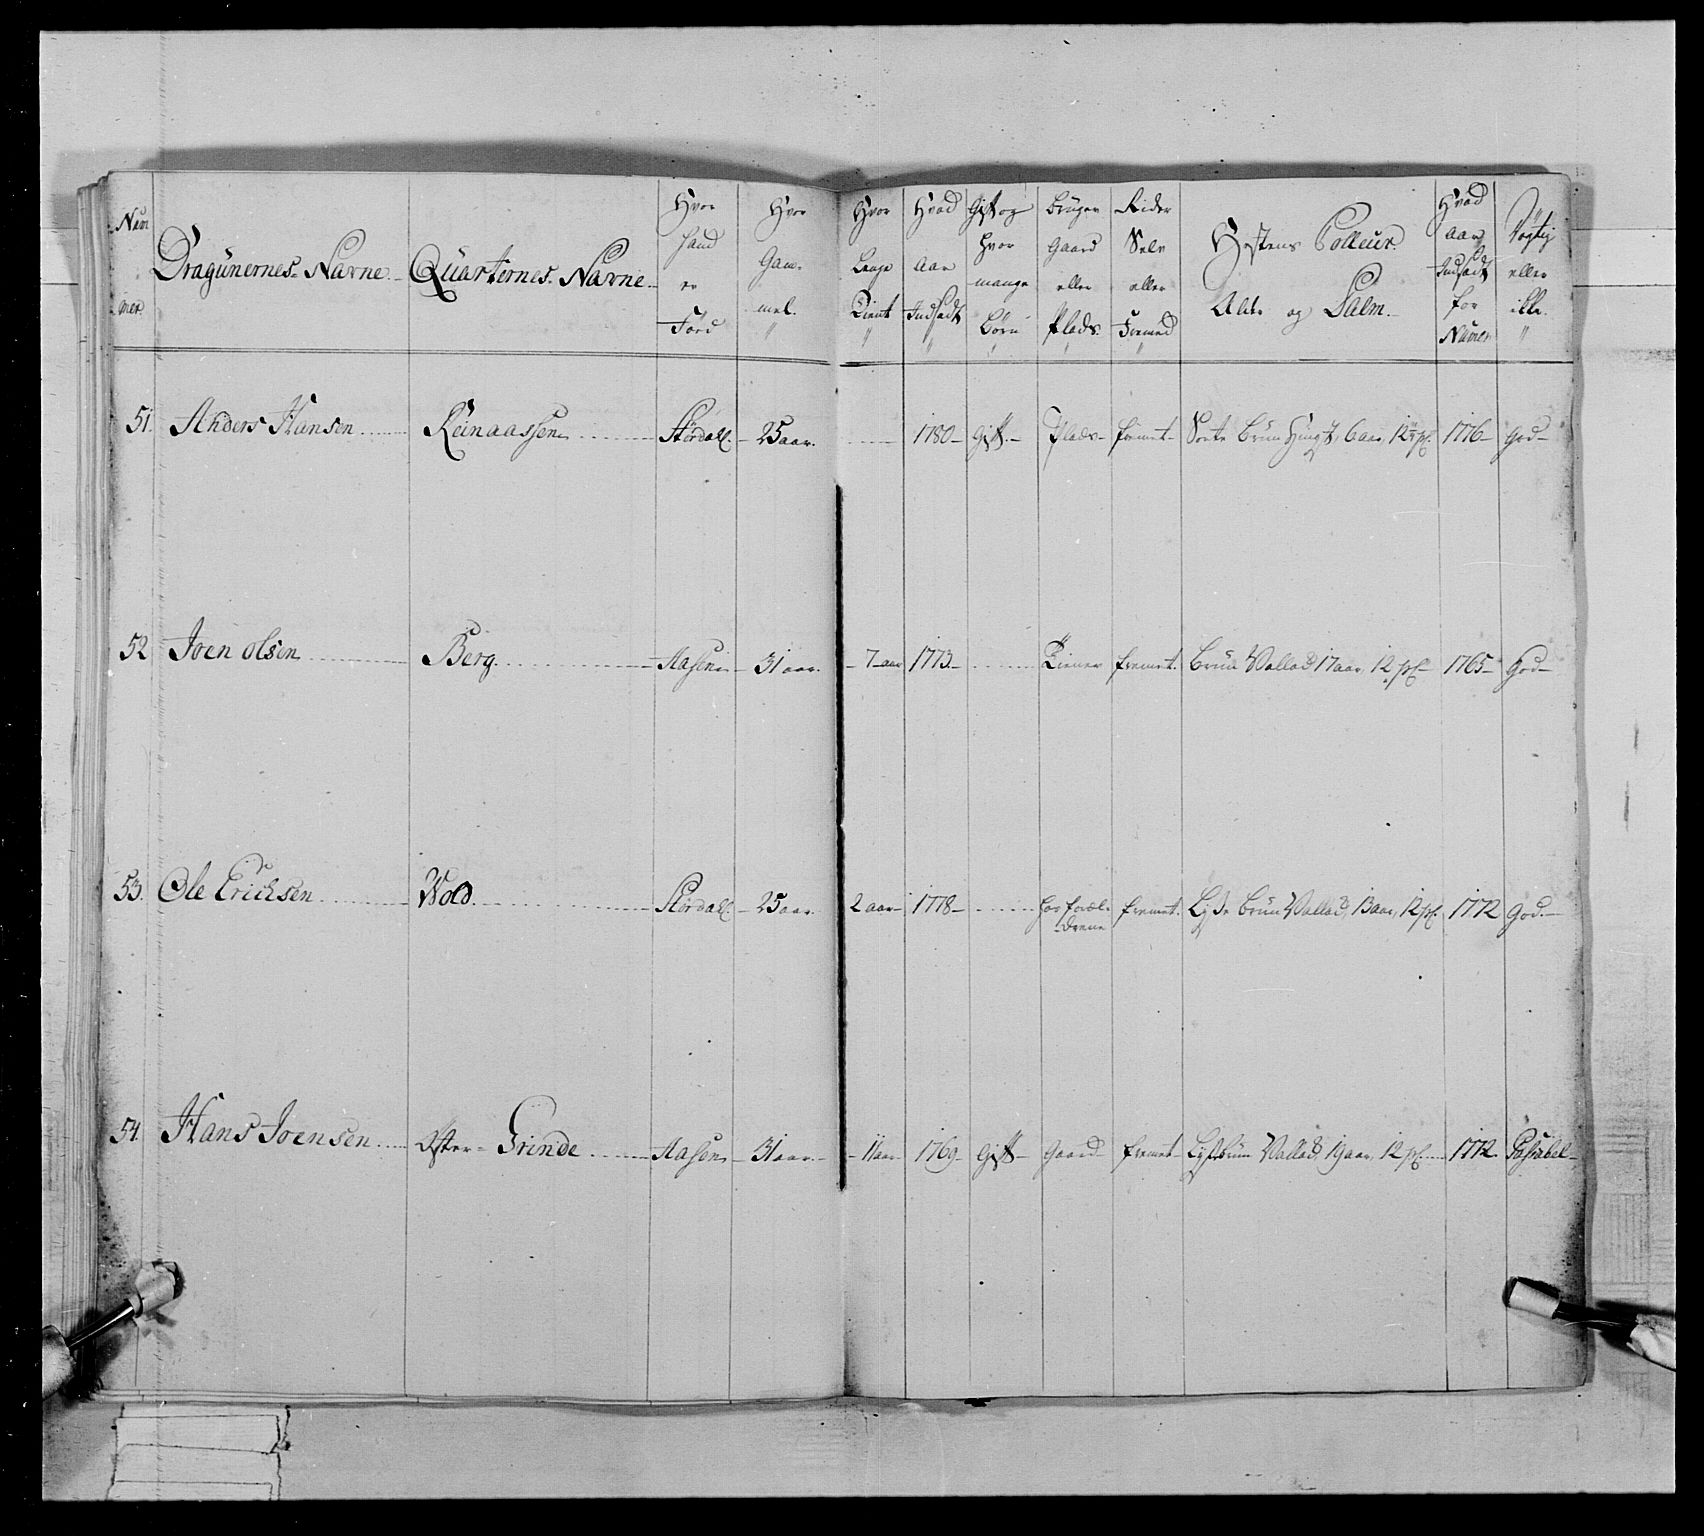 Num mer. Dragünernes Navne Qüarternes Navne Hvor hand er Förd Hvor Gam- mel. Hvor Lenge Tient Hvad Aar Indsadt Gift og hvor mange Börn Brüger Gaard eller Plads. Rider Selv eller Fremed Hestens Colleur Alder og Palm. Hvad aar Indsadt for Numer Dygtig eller ikke.
51. Anders Hansen Reinaassen Stördall. 25 aar. 1780 Gift Plads fremet Sorte Brün Hingst, 6 aar, 12 pl. 1776 God
52 Joen Olsen Berg Aasen 31 aar. 7 aar 1773 Tiener fremet Brün Vallad 17 aar, 12 pl 1765 God
53. Ole Ericksen Wold Stördall. 25 aar. 2 aar 1778 hos foræl- drene fremet Lyse Brün Vallad, 13 aar, 12 pl. 1772 God.
54. Hans Joensen Öster Grinde Aasen 31 aar 11 aar 1769 Gift Gaard fremet Lysbrün Vallad, 19 aar, 12 pl. 1772. Pasabel